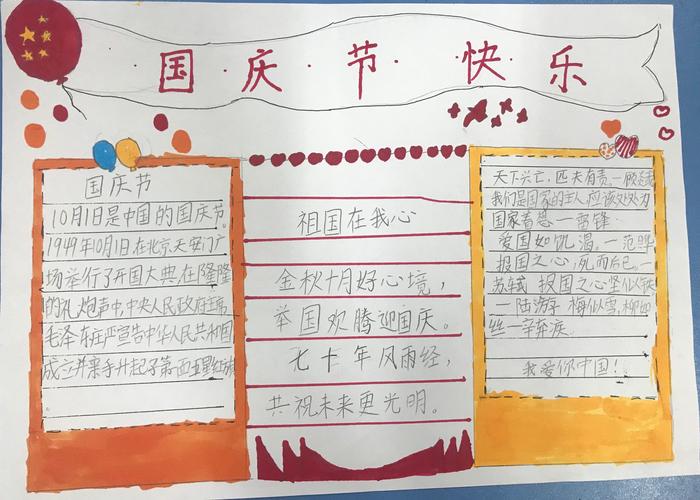 国·庆·节·快·乐
国庆节
10月1日是中国的国庆节。
1949年10月1日在北京天安门广
场举行了开国大典,在隆隆
的礼炮声中,中央人民政府主席
毛泽东庄严宣告中华人民共和国
成立并亲手升起了第一面五星红旗
祖国在我心
金秋十月好心境,
举国欢腾迎国庆。
七十年风雨经,
共祝未来更光明。
天下兴亡,匹夫有责。一顾炎武
我们是国家的主人,应该处处为
国家着想一雷锋·
爱国如饥渴。一范晔
报国之心,死而后已。一
苏轼 报国之心坚似铁
一陆游 梅似雪,柳如
丝一辛弃疾
我爱你中国!